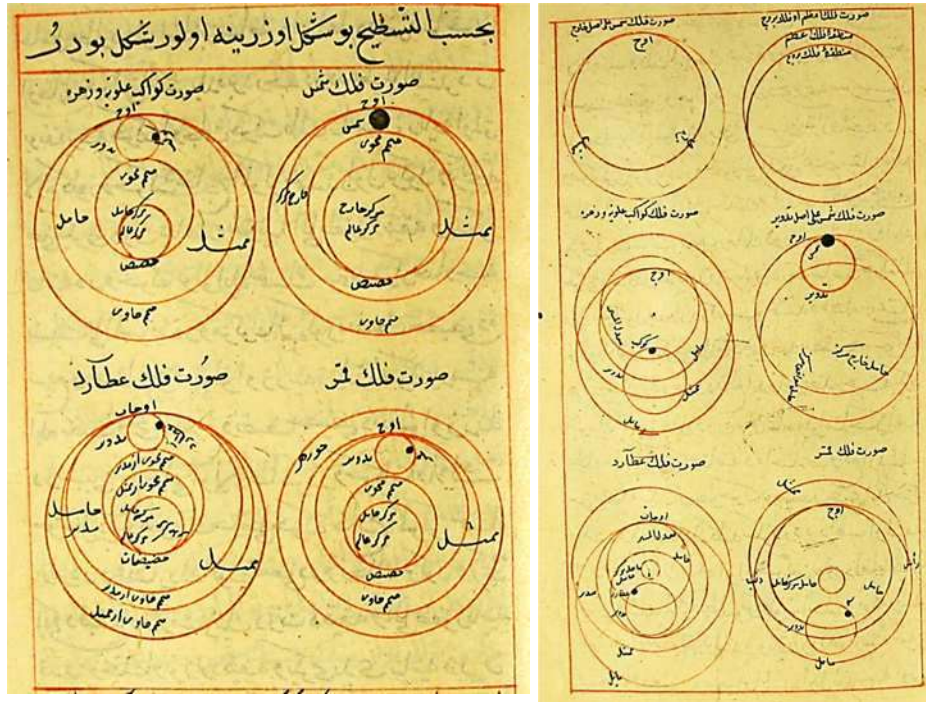 بحسب التسطيح بو شكل اوزرينه اولور شكل بودر
صورت فلك شمس
اوج
شمس
متمم محوى
خارج مركز
مركز خارج
مركز عالم
ممثل
حضيض
متمم حاوى
صورت كواكب علويه و زهره
اوج
تدوير
متمم محوى
حامل
مركز حامل
مركز عالم
ممثل
حضيض
متمم حاوى
صورت فلك قمر
اوج
جوزهر
تدوير
متمم محوى
مركز حامل
مركز عالم
ممثل
حضيض
متمم حاوى
صورت فلك عطارد
اوجات
تدوير
عطارد
متمم محوى از مدير
متمم محوى از ممثل
حامل
مدير
مركز حامل
مركز عالم
ممثل
حضيضات
متمم حاوى از مدير
متمم حاوى از ممثل
صورت فلك اعظم و فلك بروج
منطقه فلك اعظم
منطقه فلك بروج
صورت فلك شمس على اصل خارج
اوج
صورت فلك شمس على اصل تدوير
اوج
شمس
تدوير
حامل خارج مركز
صورت فلك كواكب علويه و زهره
اوج
معدل المسير
كوكب
حامل
تدوير
ممثل
مايل
صورت فلك قمر
ممثل
اوج
رأس
ذنب
حامل مركز حامل
حامل
تدوير
مايل
صورت فلك عطارد
اوجات
معدل المسير
حامل
حامل مركز حامل
عطارد
مدير
تدوير
ممثل
مايل